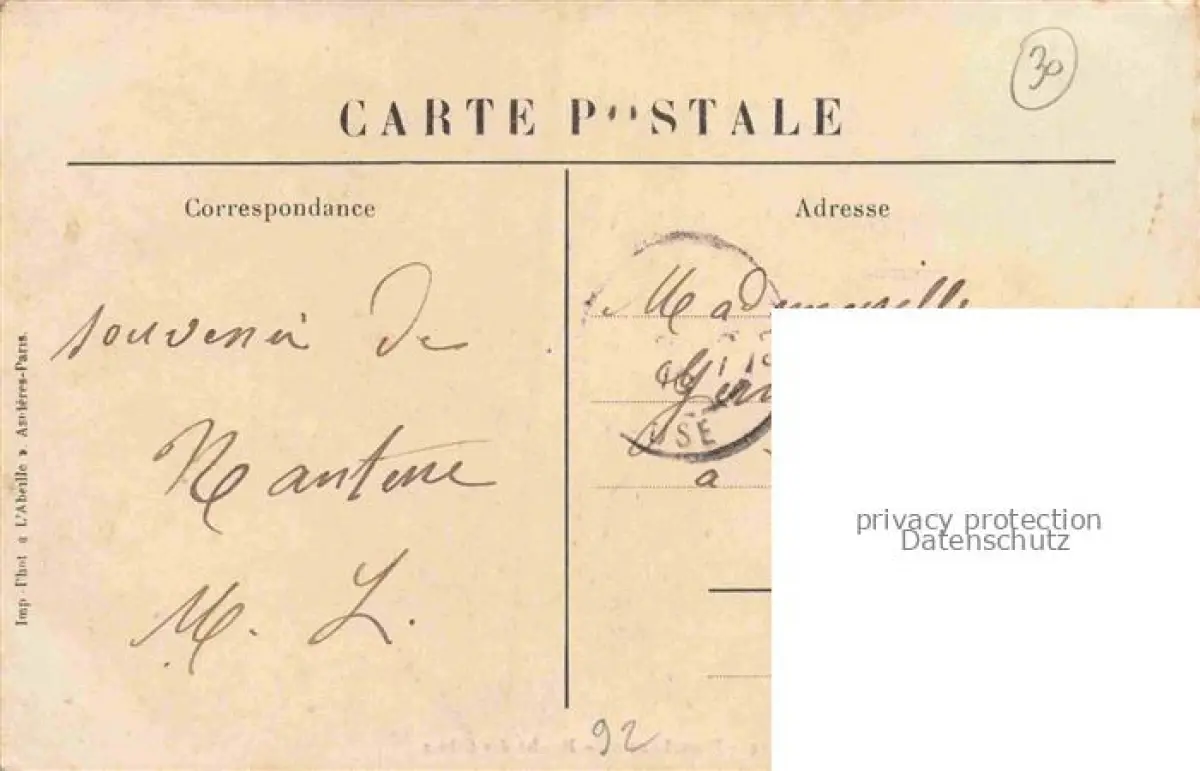 30
CARTE POSTALE
Correspondance
Adresse
souvenir de
Nanterre
M. L.
Mademoiselle
USE
à
92
Imp-Phot « L'Abeille ». Asnières-Paris.
privacy protection
Datenschutz